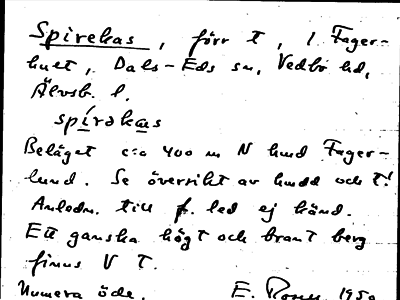 Spirekas, förr t, i Fager-
hult, Dals-Eds sn, Vedbo hd,
Älvsb. l.
spírəkas
Beläget c:a 400 m N hmd Fager-
lund. Se översikt av hmdd och t!
Anledn. till f. led ej känd.
Ett ganska högt och brant berg
finns V T.
Numera öde. E. 1950